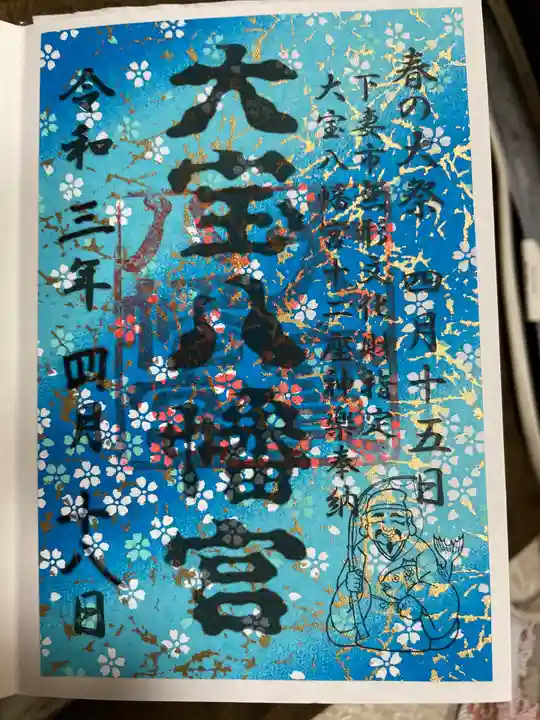 春の大祭 四月十五日
下妻市無形文化財指定
大宝八幡宮十二座神楽奉納
大宝八幡宮
令和三年 四月十八日